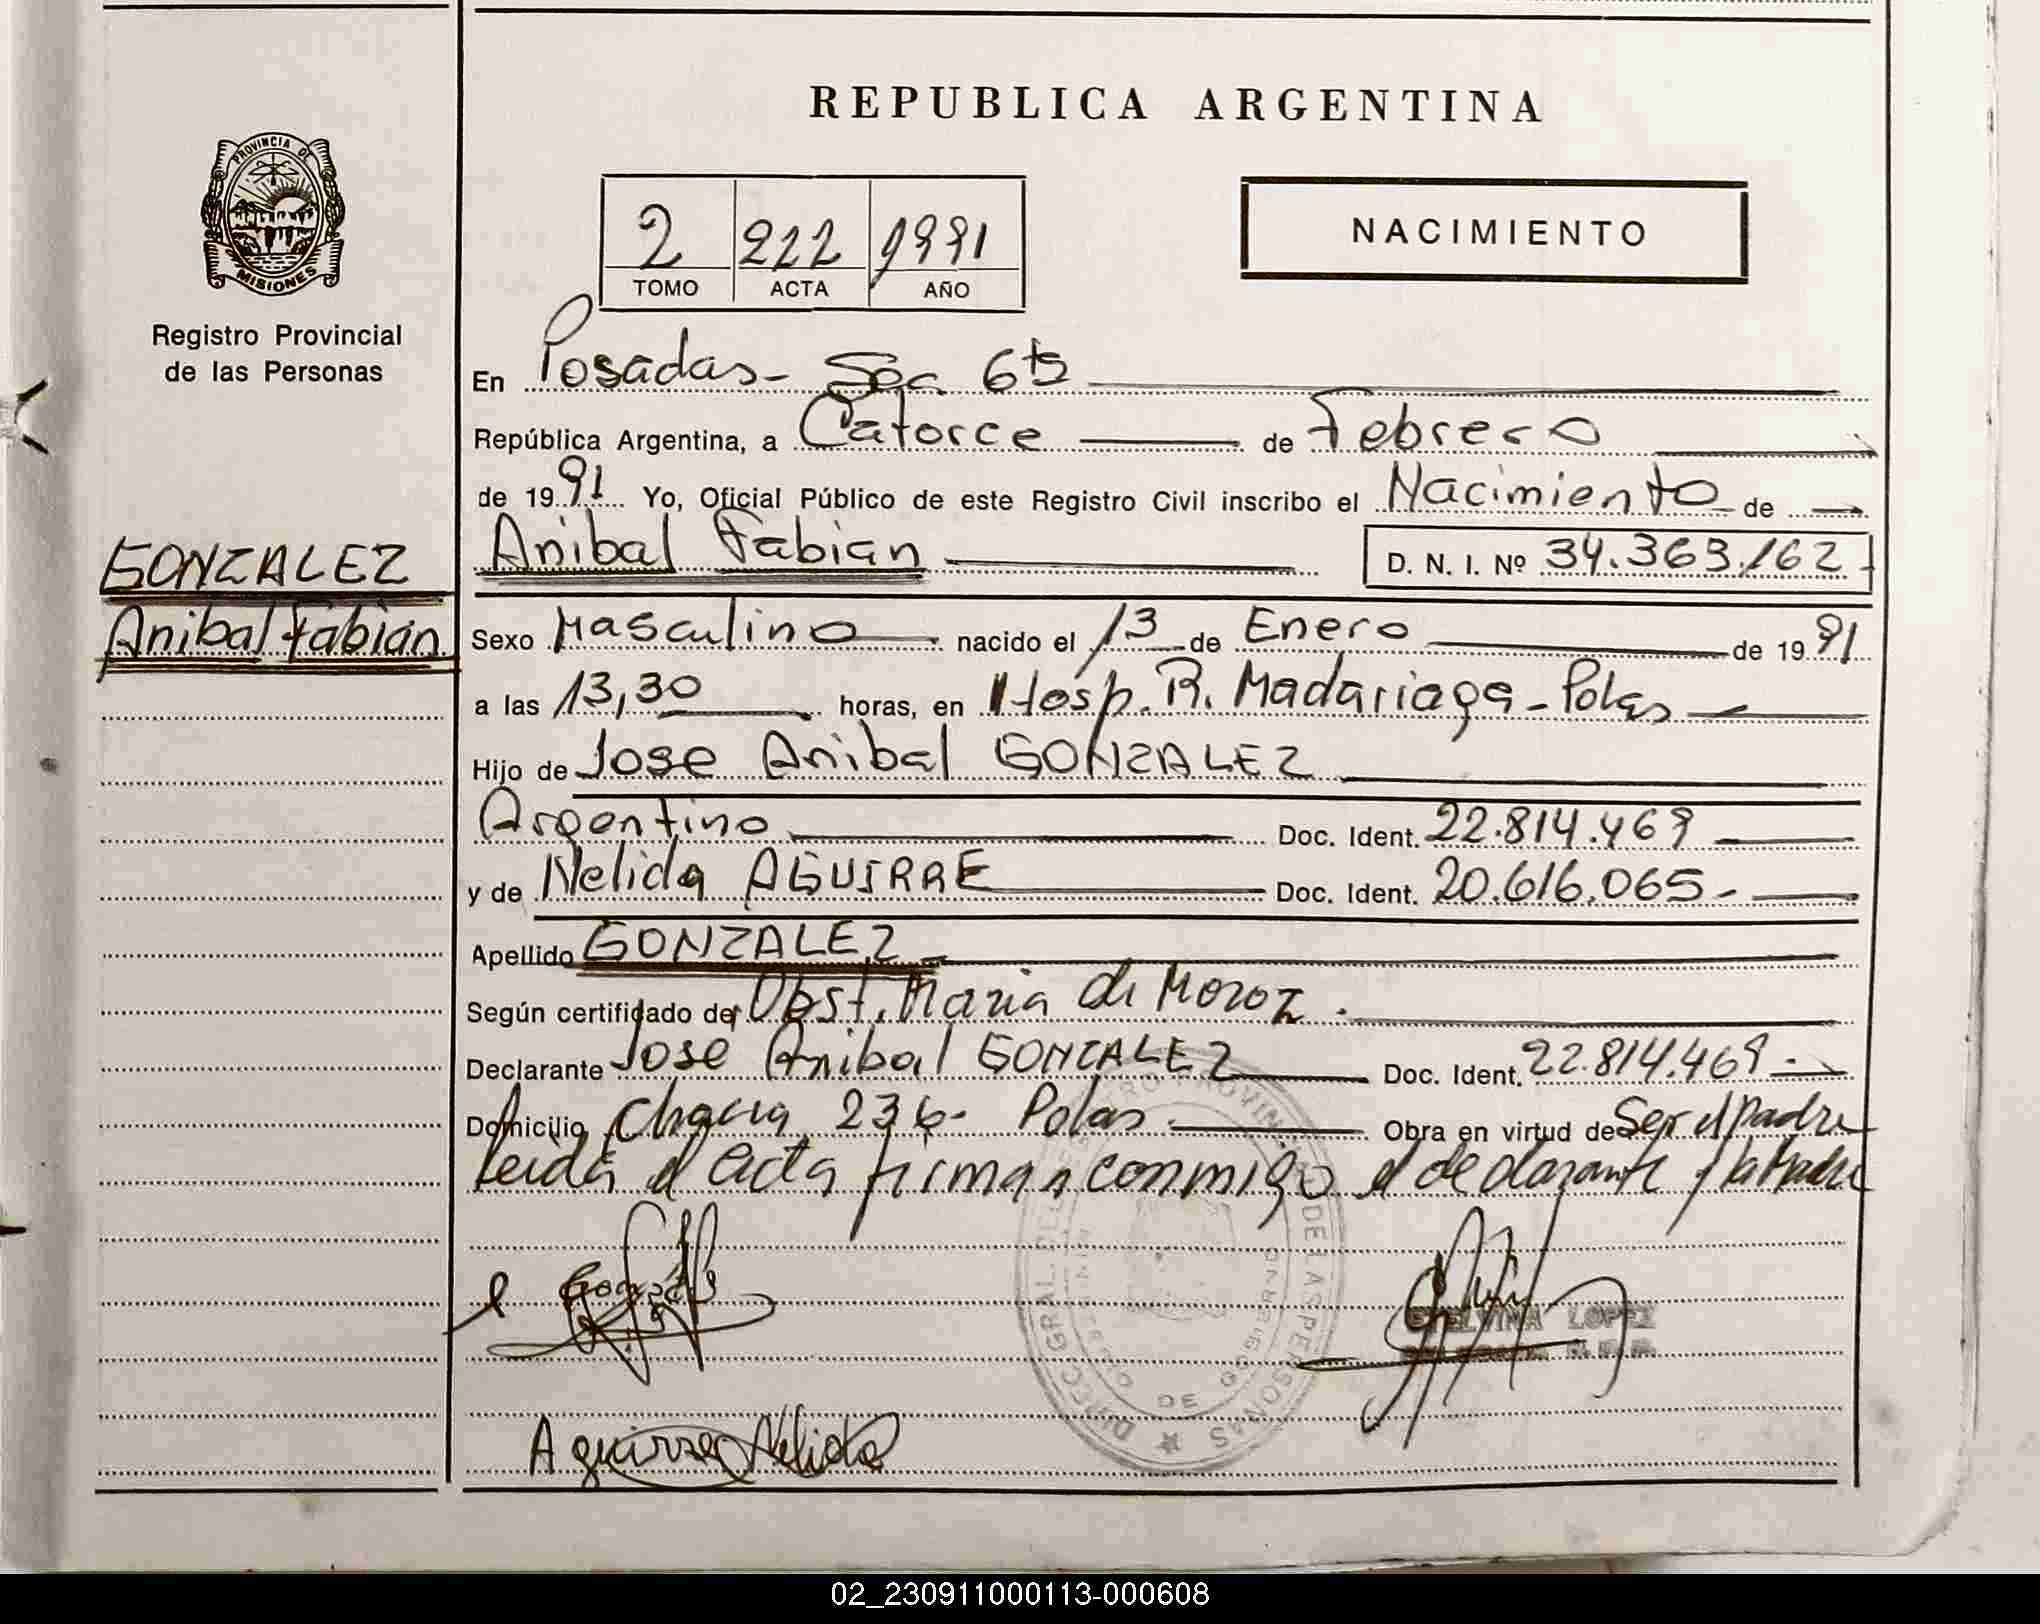 REPUBLICA ARGENTINA
PROVINCIA DE
MISIONES
Registro Provincial
de las Personas
2 222 1991
TOMO ACTA AÑO
NACIMIENTO
GONZALEZ
Anibal Fabián
En Posadas - Sec 6ta
República Argentina, a Catorce de Febrero
de 1991 Yo, Oficial Público de este Registro Civil inscribo el Nacimiento de
Anibal Fabian D. N. I. Nº 34.363.162
Sexo Masculino nacido el 13 de Enero de 1991
a las 13,30 horas, en Hosp. R. Madariaga - Pdas
Hijo de Jose Anibal GONZALEZ
Argentino Doc. Ident. 22.814.469
y de Nelida AGUIRRE Doc. Ident. 20.616.065 -
Apellido GONZALEZ
Según certificado de Obst. Maria de Moroz.
Declarante Jose Anibal GONZALEZ Doc. Ident. 22.814.469 -
Domicilio Chacra 236 - Pdas. Obra en virtud de Ser el padre
Leida el acta firman conmigo el declarante y la Madre
Gonzalez
LOPEZ
DIREC. GRAL. DEL REGISTRO PROVINCIAL DE LAS PERSONAS
DE GOBIERNO
Aguirre Nelida
02_230911000113-000608